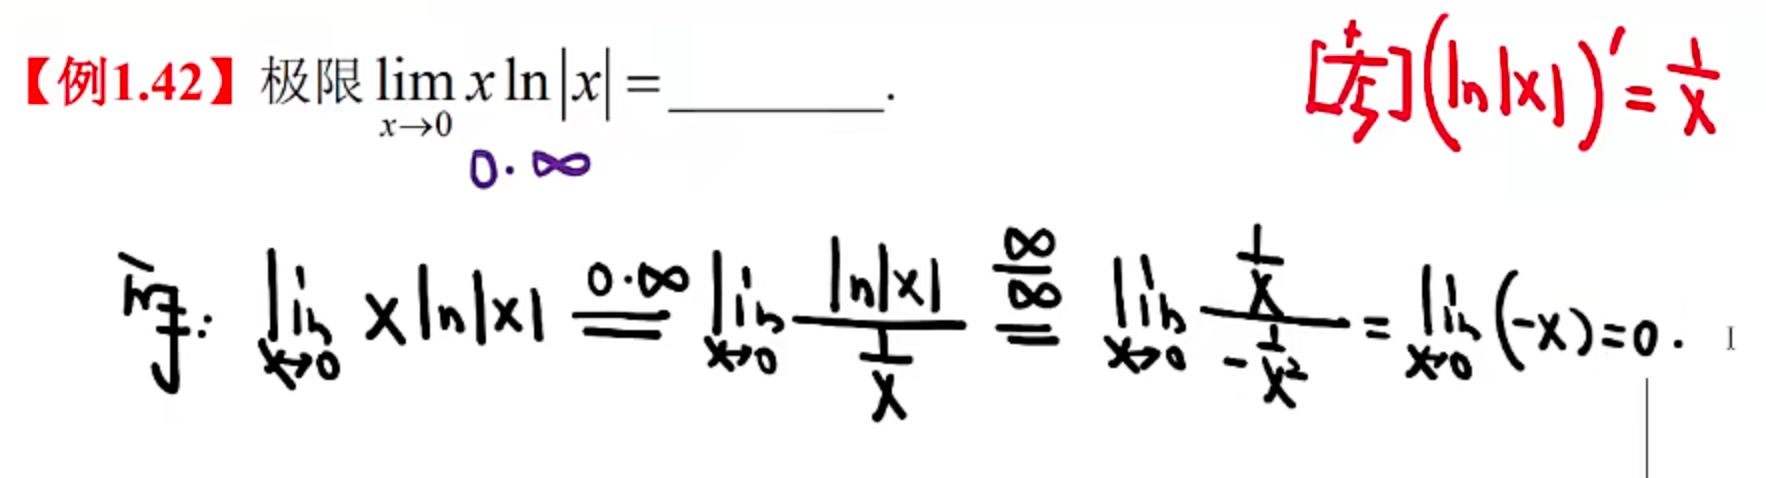 【例1.42】极限 lim x→0 x ln|x| = ________.
[技巧](ln|x|)′ = 1/x
0·∞
解: lim x→0 x ln|x| =(0·∞)= lim x→0 ln|x| / (1/x) =(∞/∞)= lim x→0 (1/x) / (-1/x²) = lim x→0 (-x) = 0.